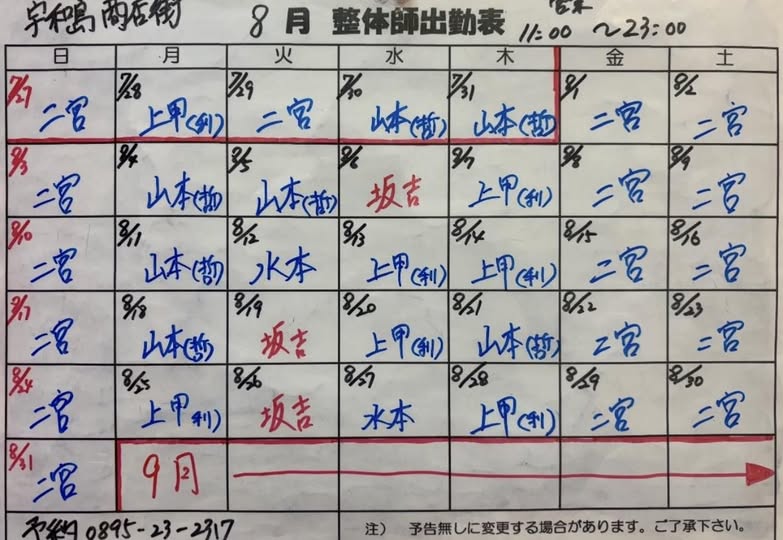 宇和島 商店街 8月 整体師出勤表 営業 11:00 ～23:00
日 月 火 水 木 金 土
7/27 7/28 7/29 7/30 7/31 8/1 8/2
二宮 上甲(利) 二宮 山本(哲) 山本(哲) 二宮 二宮
8/3 8/4 8/5 8/6 8/7 8/8 8/9
二宮 山本(哲) 山本(哲) 坂吉 上甲(利) 二宮 二宮
8/10 8/11 8/12 8/13 8/14 8/15 8/16
二宮 山本(哲) 水本 上甲(利) 上甲(利) 二宮 二宮
8/17 8/18 8/19 8/20 8/21 8/22 8/23
二宮 山本(哲) 坂吉 上甲(利) 山本(哲) 二宮 二宮
8/24 8/25 8/26 8/27 8/28 8/29 8/30
二宮 上甲(利) 坂吉 水本 上甲(利) 二宮 二宮
8/31
二宮 9月
予約 0895-23-2317 注） 予告無しに変更する場合があります。ご了承下さい。